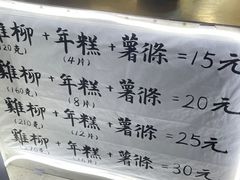 雞柳 + 年糕 + 薯條 = 15元
(120克) (4片)
雞柳 + 年糕 + 薯條 = 20元
(160克) (8片)
雞柳 + 年糕 + 薯條 = 25元
(210克) (12片)
雞柳 + 年糕 + 薯條 = 30元